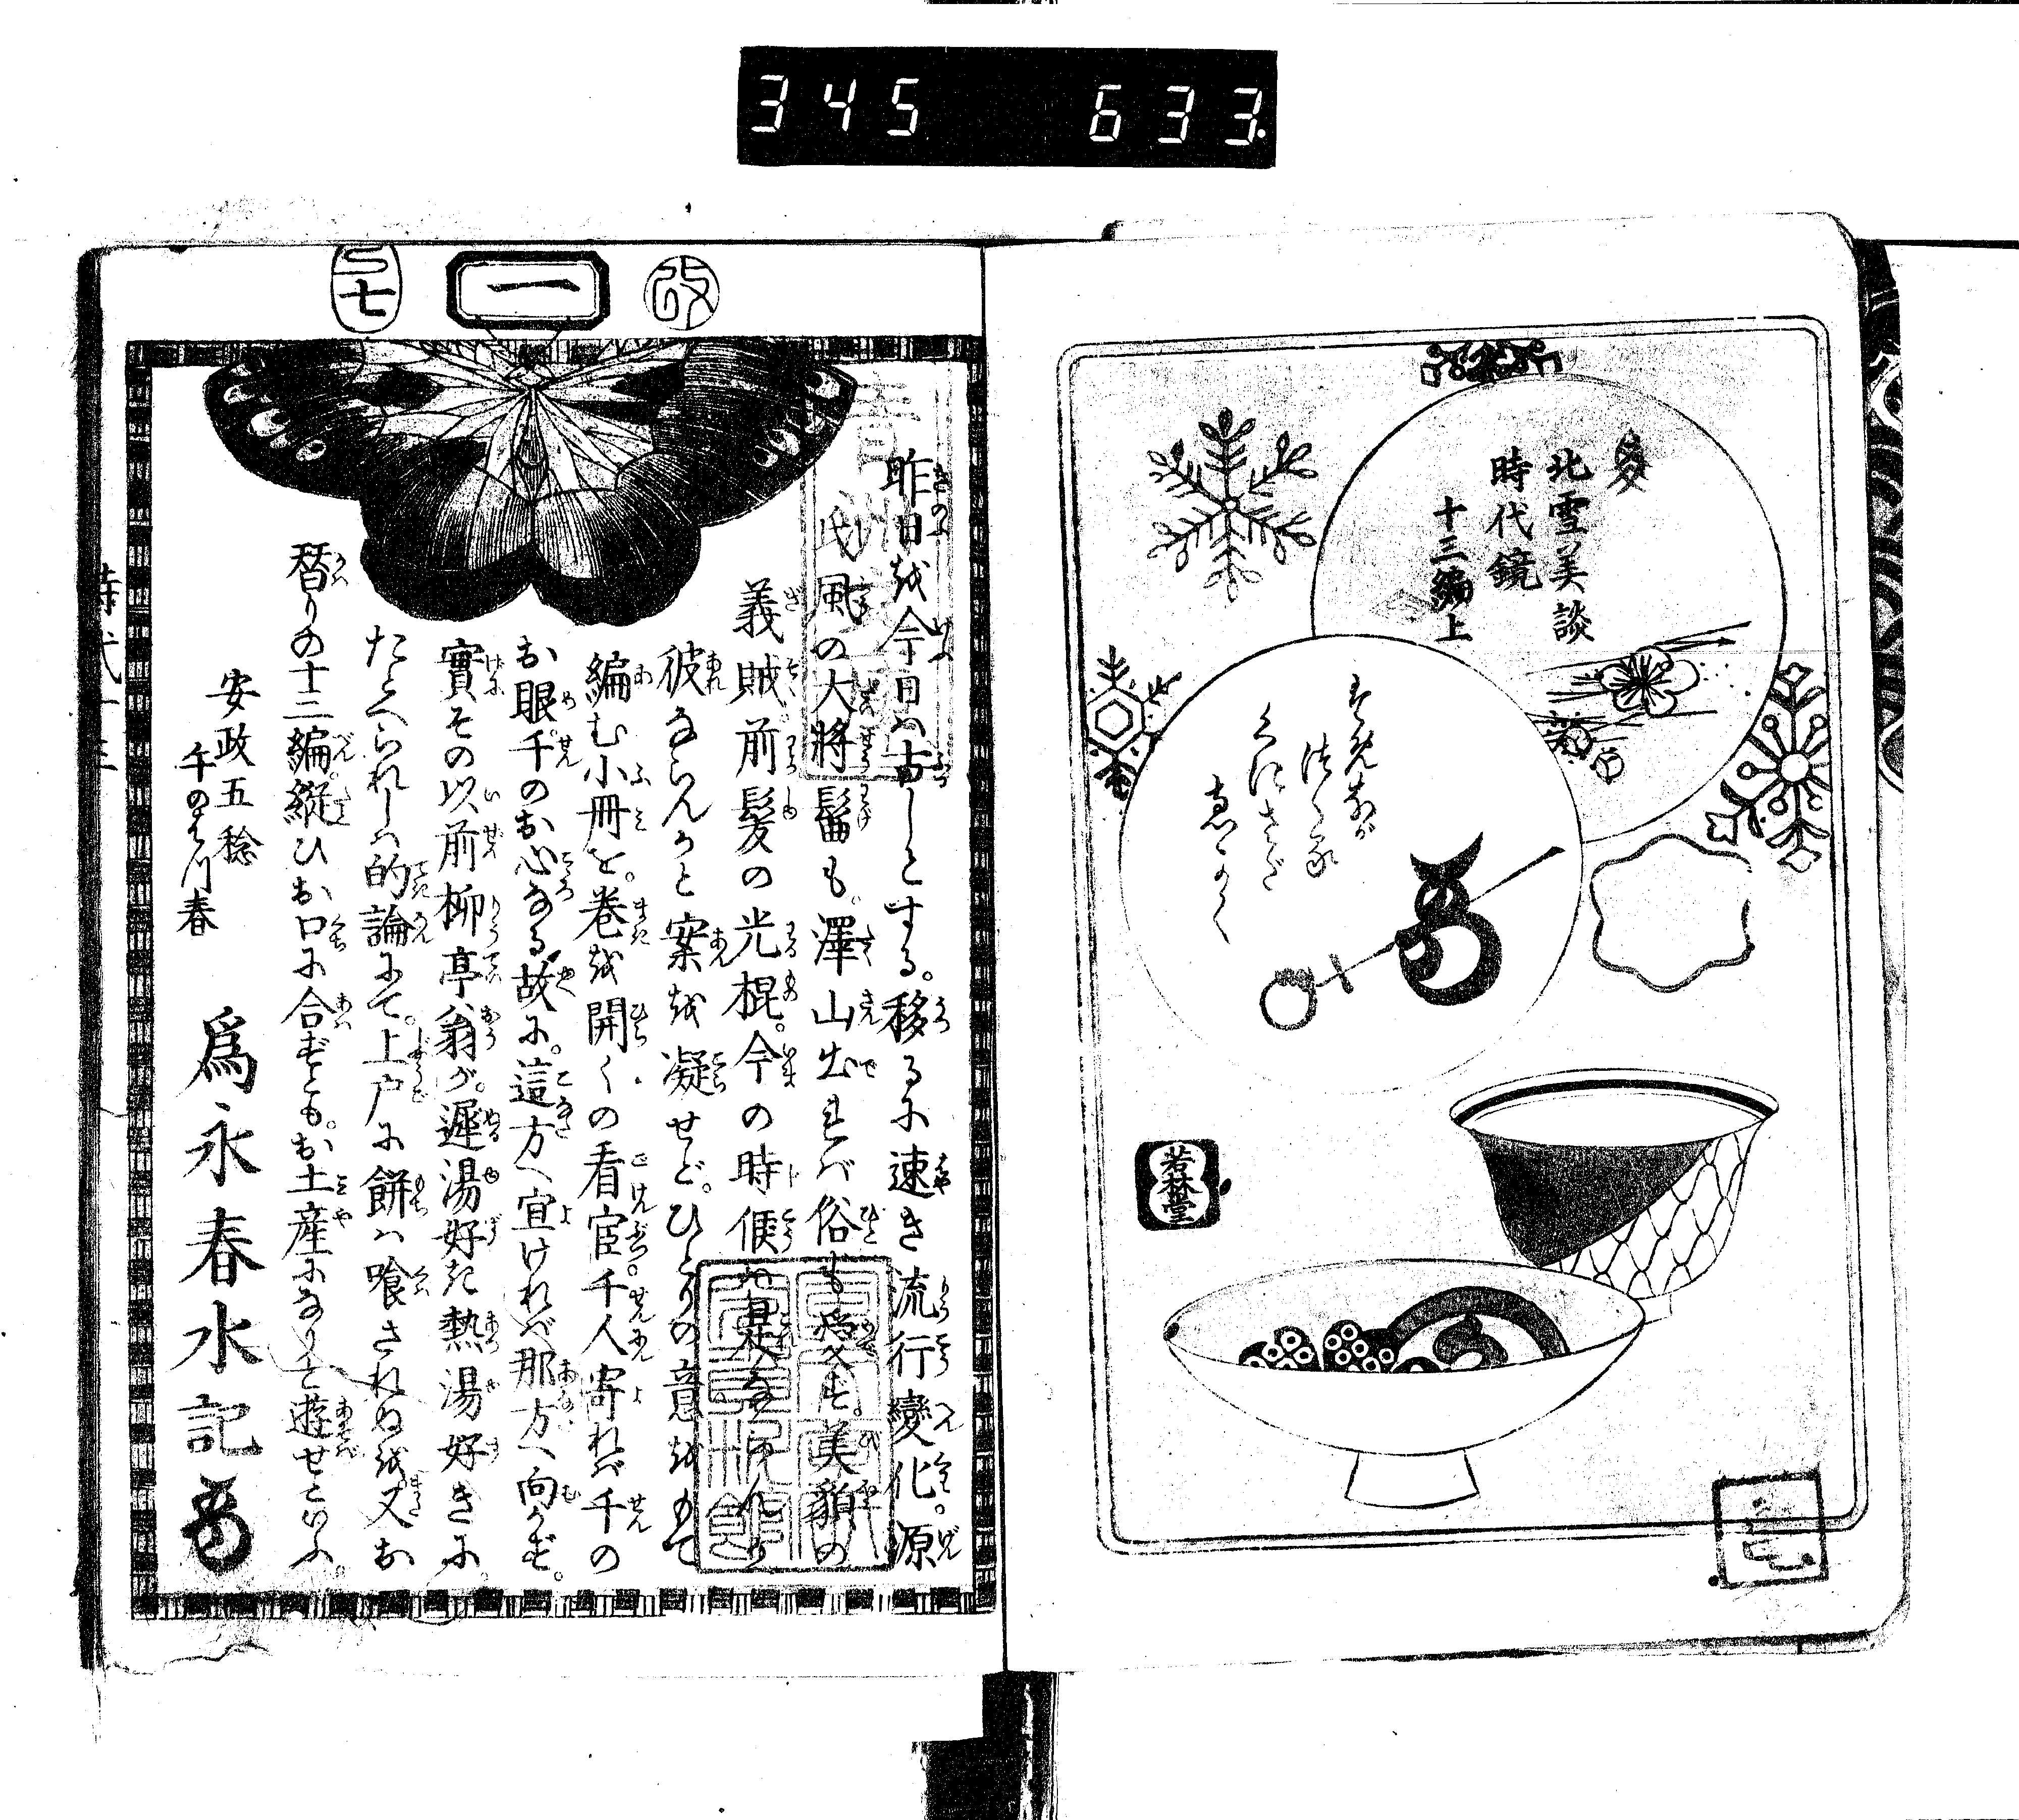 345 633
北雪美談
時代鏡
十三編上
若林堂
改
一
巳七
昨日越今日ハ古しとする。移るに速き流行變化。源
氏風の大將髷も。澤山出れバ俗も
義賊前髪の光棍。今の時
彼ならんかと案越凝せど。ひとりの意越もて
編む小冊を。巻越開くの看官千人寄れバ千の
お眼千のお心なる故に。這方へ宜けれバ那方へ向かず。
實その以前柳亭翁が。遲湯好た熱湯好きに。
たとへられしハ的論にて。上戸に餅ハ喰されぬ越又お
替りの十三編縦ひお口に合ずとも。お土産になりと遊せといふ。
安政五稔
千のはつ春
爲永春水記